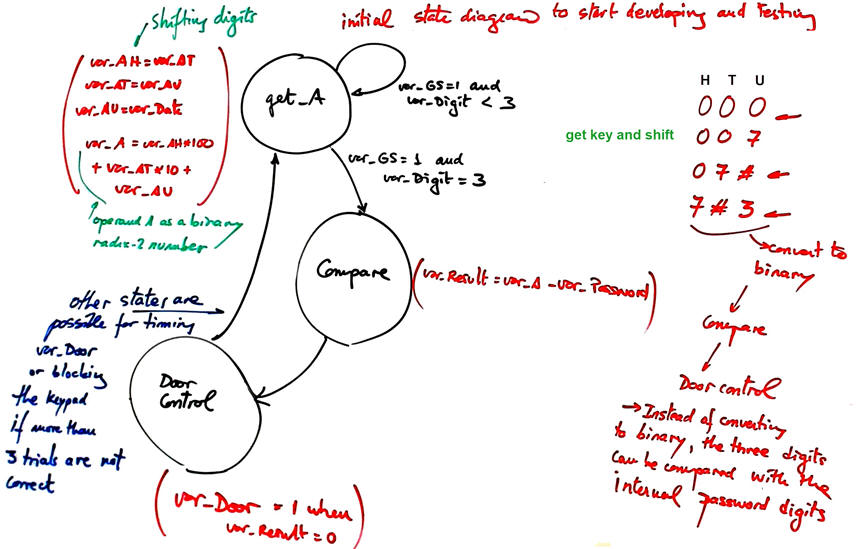 initial state diagram to start developing and Testing
shifting digits
var_AH = var_AT
var_AT = var_AU
var_AU = var_Data
var_A = var_AH*100
+ var_AT*10 +
var_AU
operand A as a binary
radix-2 number
get_A
var_GS=1 and
var_Digit < 3
var_GS=1 and
var_Digit = 3
Compare
(var_Result = var_A - var_Password)
other states are
possible for timing
var_Door
or blocking
the keypad
if more than
3 trials are not
correct
Door
Control
(var_Door = 1 when
var_Result = 0)
H T U
0 0 0
get key and shift
0 0 7
0 7 #
7 # 3
convert to
binary
Compare
Door control
→ Instead of converting
to binary, the three digits
can be compared with the
internal password digits